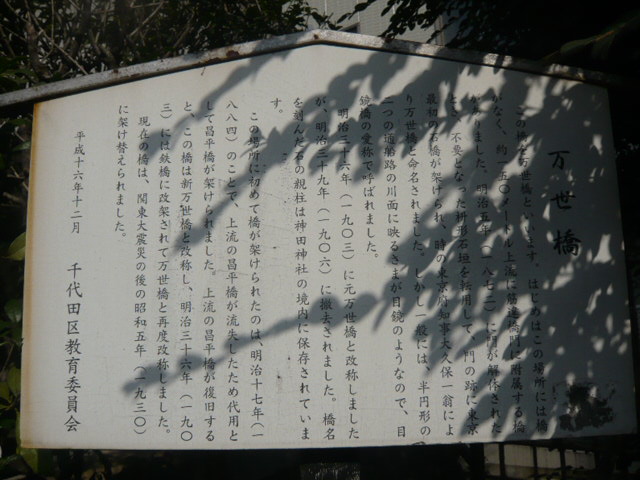 万世橋
この橋を万世橋といいます。はじめはこの場所には橋
がなく、約一五〇メートル上流に筋違橋門に附属する橋
がありました。明治五年（一八七二）に門が解体された
とき、不要となった枡形石垣を転用して、門の跡に東京
最初の石橋が架けられ、時の東京府知事大久保一翁によ
り万世橋と命名されました。しかし一般には、半円形の
二つの通船路の川面に映るさまが目鏡のようなので、目
鏡橋の愛称で呼ばれました。
明治三十六年（一九〇三）に元万世橋と改称しました
が、明治三十九年（一九〇六）に撤去されました。橋名
を刻んだ石の親柱は神田神社の境内に保存されていま
す。
この場所に初めて橋が架けられたのは、明治十七年（一
八八四）のことで、上流の昌平橋が流失したため代用と
して昌平橋が架けられました。上流の昌平橋が復旧する
と、この橋は新万世橋と改称し、明治三十六年（一九〇
三）には鉄橋に改架されて万世橋と再度改称しました。
現在の橋は、関東大震災の後の昭和五年（一九三〇）
に架け替えられました。
平成十六年十二月
千代田区教育委員会